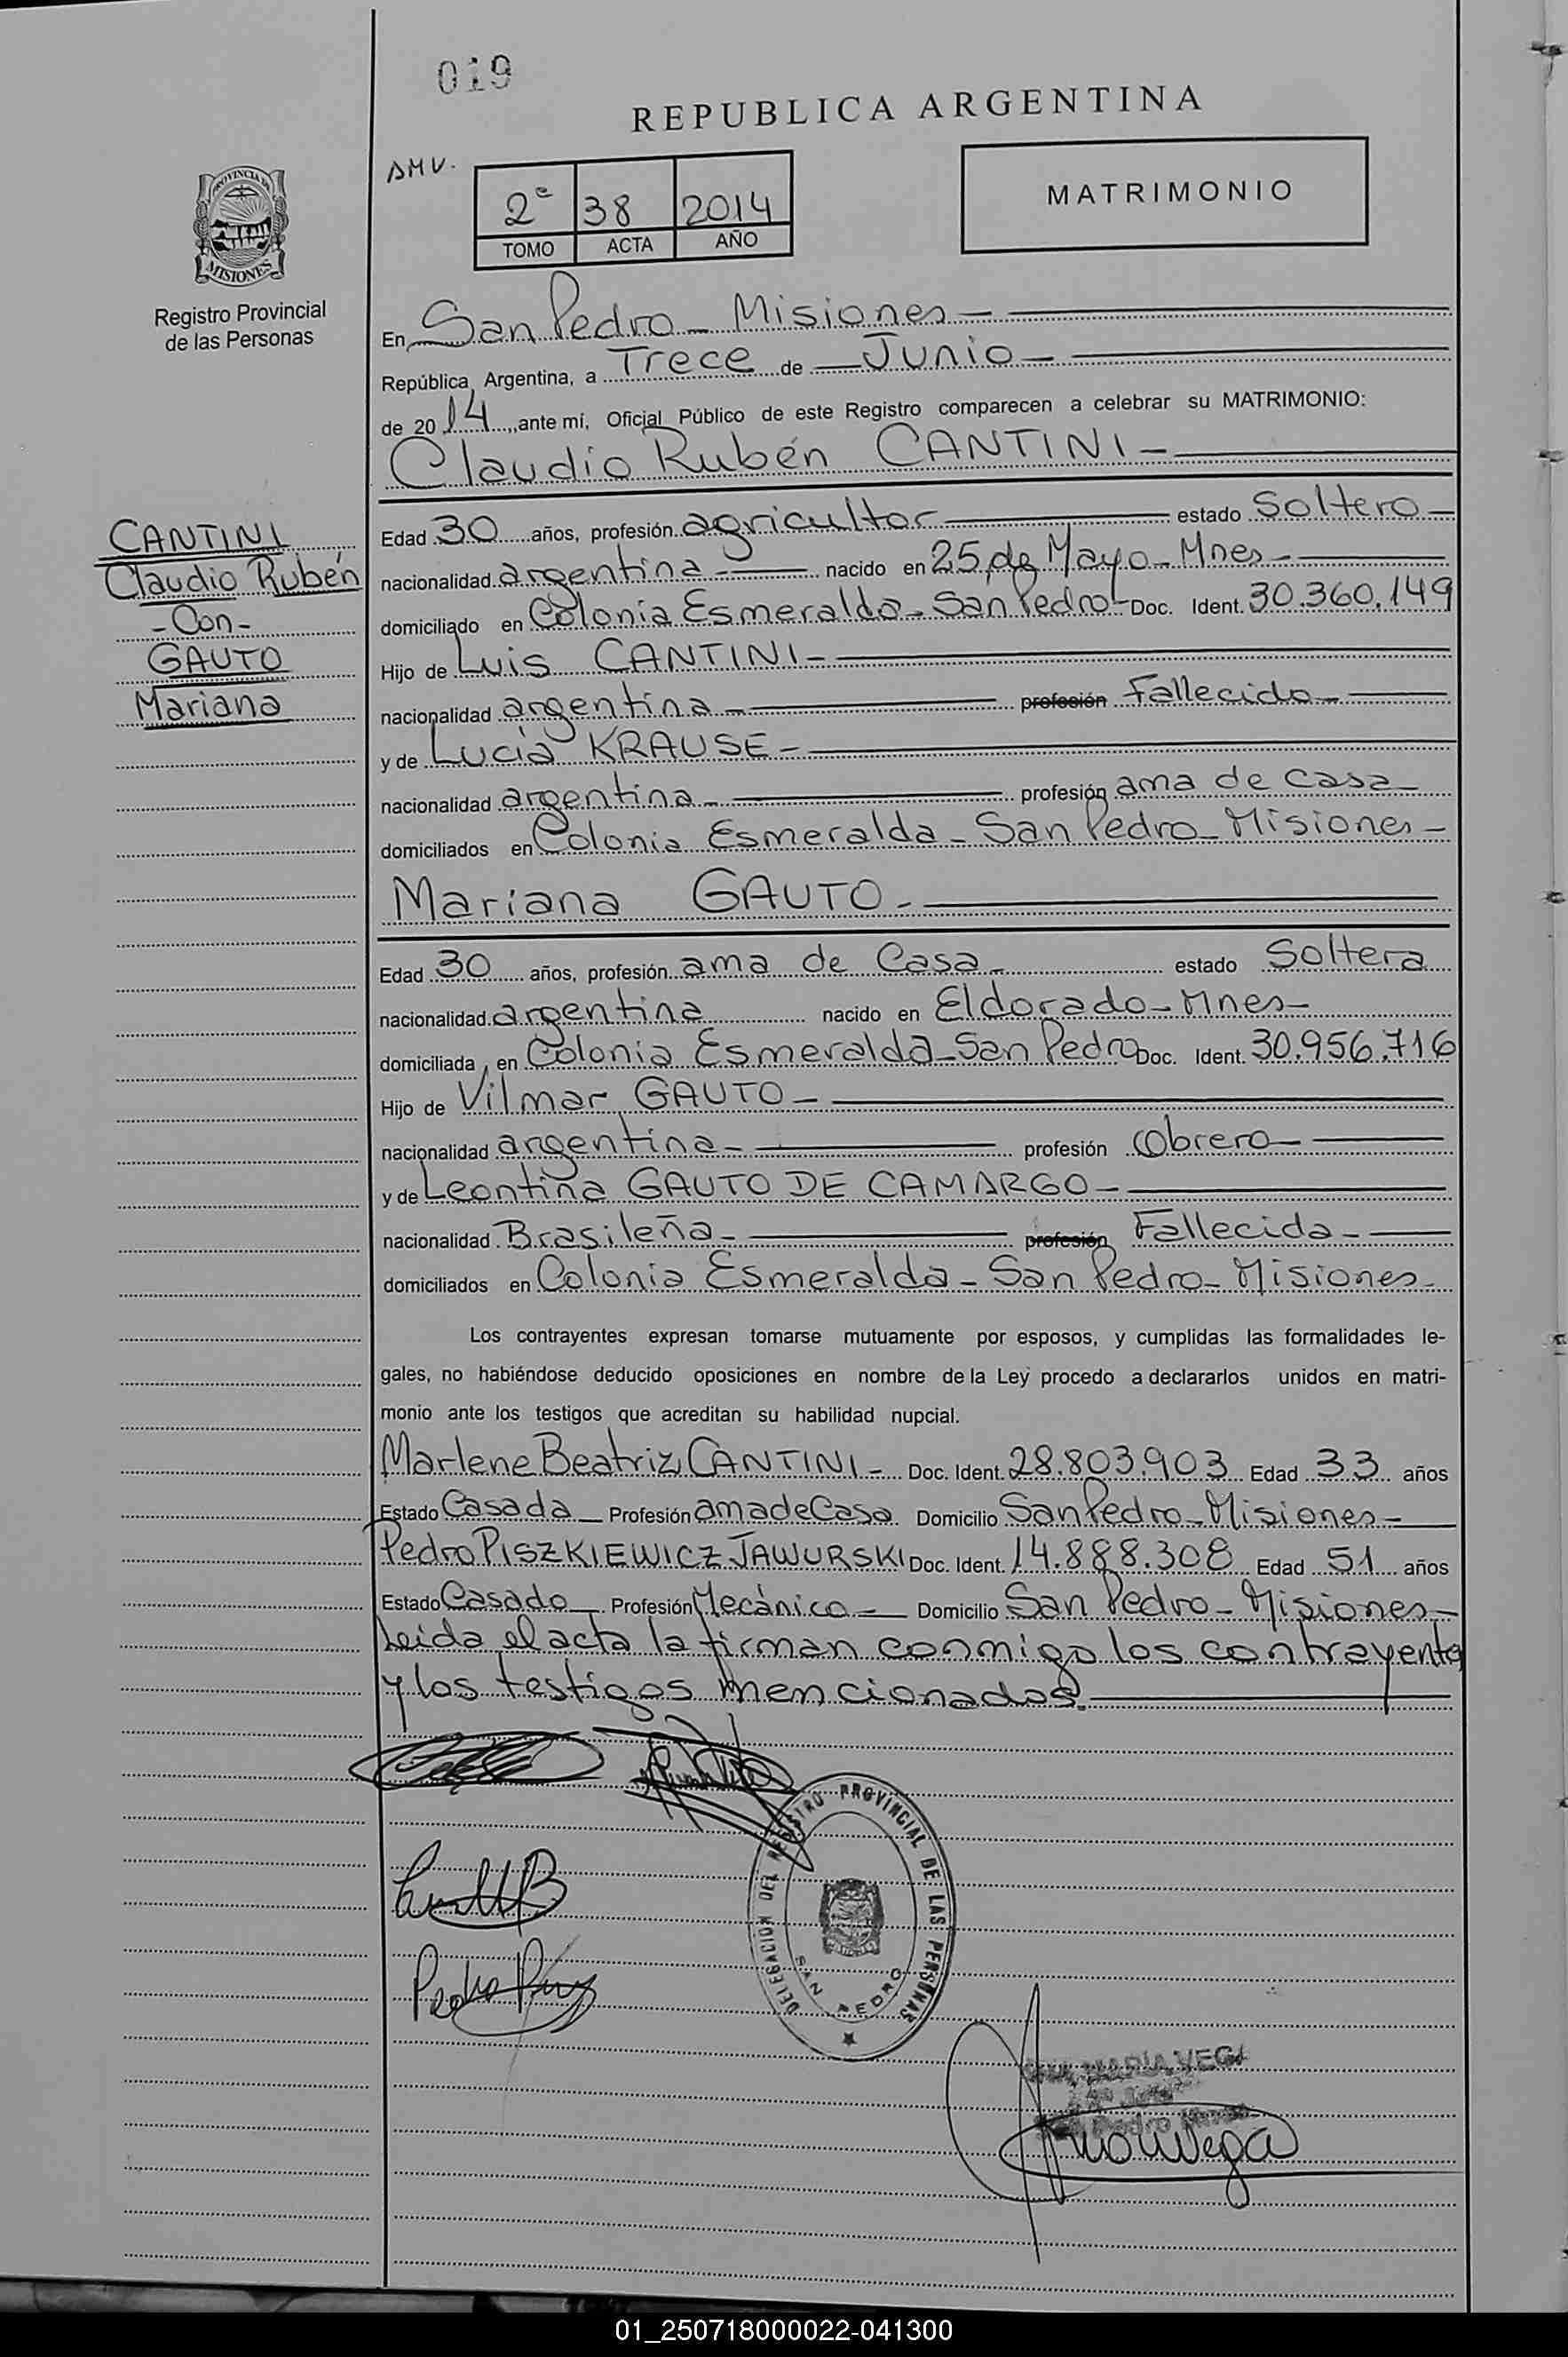 019
REPUBLICA ARGENTINA
AMV.
2º 38 2014
TOMO ACTA AÑO
MATRIMONIO
PROVINCIA DE
MISIONES
Registro Provincial
de las Personas
En San Pedro - Misiones -
República Argentina, a Trece de Junio -
de 2014, ante mí, Oficial Público de este Registro comparecen a celebrar su MATRIMONIO:
Claudio Rubén CANTINI -
CANTINI
Claudio Rubén
- Con -
GAUTO
Mariana
Edad 30 años, profesión agricultor estado Soltero -
nacionalidad argentina - nacido en 25 de Mayo - Mnes -
domiciliado en Colonia Esmeralda - San Pedro - Doc. Ident. 30.360.149
Hijo de Luis CANTINI -
nacionalidad argentina - profesión Fallecido -
y de Lucia KRAUSE -
nacionalidad argentina - profesión ama de casa -
domiciliados en Colonia Esmeralda - San Pedro - Misiones -
Mariana GAUTO -
Edad 30 años, profesión ama de Casa - estado Soltera
nacionalidad argentina nacido en Eldorado - Mnes -
domiciliada en Colonia Esmeralda - San Pedro Doc. Ident. 30.956.716
Hijo de Vilmar GAUTO -
nacionalidad argentina - profesión Obrero -
y de Leontina GAUTO DE CAMARGO -
nacionalidad Brasileña - profesión Fallecida -
domiciliados en Colonia Esmeralda - San Pedro - Misiones -
Los contrayentes expresan tomarse mutuamente por esposos, y cumplidas las formalidades le-
gales, no habiéndose deducido oposiciones en nombre de la Ley procedo a declararlos unidos en matri-
monio ante los testigos que acreditan su habilidad nupcial.
Marlene Beatriz CANTINI - Doc. Ident. 28.803.903 Edad 33 años
Estado Casada - Profesión ama de Casa Domicilio San Pedro - Misiones -
Pedro PISZKIEWICZ JAWURSKI Doc. Ident. 14.888.308 Edad 51 años
Estado Casado - Profesión Mecánico - Domicilio San Pedro - Misiones -
Leida el acta la firman conmigo los contrayentes
y los testigos mencionados.
DELEGACION DEL REGISTRO PROVINCIAL DE LAS PERSONAS
SAN PEDRO
Pedro
MARIA VEGA
San Pedro
01_250718000022-041300